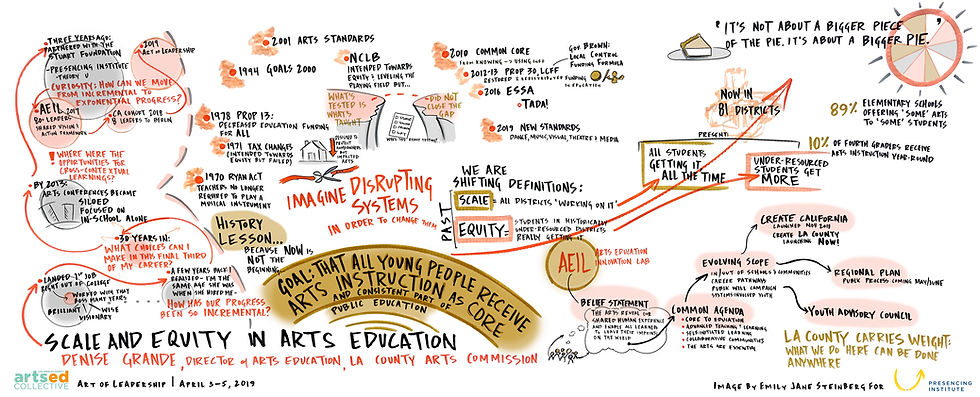 THREE YEARS AGO:
PARTNERED WITH THE
STUART FOUNDATION
-PRESENCING INSTITUTE
-THEORY U
CURIOSITY: HOW CAN WE MOVE
FROM INCREMENTAL TO
EXPONENTIAL PROGRESS?
2019
ART OF LEADERSHIP
AEIL 2017
80+ LEADERS
SHARED VISION &
ACTION FRAMEWORK
CA COHORT 2018
8 LEADERS TO BERLIN
! WHERE WERE THE
OPPORTUNITIES FOR
CROSS-CONTEXTUAL
LEARNINGS?
BY 2013:
ARTS CONFERENCES BECAME
SILOED
FOCUSED ON
IN-SCHOOL ALONE
30 YEARS IN:
WHAT CHOICES CAN I
MAKE IN THIS FINAL THIRD
OF MY CAREER?
LANDED 1ST JOB
RIGHT OUT OF COLLEGE
WORKED WITH THAT
BOSS MANY YEARS
BRILLIANT WISE
VISIONARY
A FEW YEARS BACK I
REALIZE - I'M THE
SAME AGE SHE WAS
WHEN SHE HIRED ME-
HOW HAS OUR PROGRESS
BEEN SO INCREMENTAL?
2001 ARTS STANDARDS
1994 GOALS 2000
1978 PROP 13:
DECREASED EDUCATION FUNDING
FOR ALL
1971 TAX CHANGES
(INTENDED TOWARDS
EQUITY BUT FAILED)
DESIGNED TO
PROTECT
HOMEOWNERS
BUT
IMPACTED
ARTS
1970 RYAN ACT
TEACHERS NO LONGER
REQUIRED TO PLAY A
MUSICAL INSTRUMENT
NCLB
INTENDED TOWARDS
EQUITY & LEVELING THE
PLAYING FIELD BUT...
WHAT'S
TESTED IS
WHAT'S
TAUGHT
DID NOT
CLOSE THE
GAP
2010 COMMON CORE
FROM KNOWING → USING
GOV BROWN:
LOCAL CONTROL
FUNDING FORMULA
2012-13 PROP 30, LCFF
FUNDING
TO EDUCATION
2016 ESSA
TADA!
2019 NEW STANDARDS
DANCE, MUSIC, VISUAL, THEATRE & MEDIA
HISTORY
LESSON...
BECAUSE NOW IS
NOT THE
BEGINNING
IMAGINE DISRUPTING
SYSTEMS
IN ORDER TO CHANGE THEM
PAST
WE ARE
SHIFTING DEFINITIONS:
SCALE = ALL DISTRICTS 'WORKING ON IT'
EQUITY: STUDENTS IN HISTORICALLY
UNDER-RESOURCED DISTRICTS
REALLY GETTING IT
"IT'S NOT ABOUT A BIGGER PIECE
OF THE PIE. IT'S ABOUT A BIGGER PIE."
NOW IN
81 DISTRICTS
PRESENT:
ALL STUDENTS
GETTING IT
ALL THE TIME
UNDER-RESOURCED
STUDENTS GET
MORE
89% ELEMENTARY SCHOOLS
OFFERING 'SOME' ARTS
TO 'SOME' STUDENTS
10% OF FOURTH GRADERS RECEIVE
ARTS INSTRUCTION YEAR-ROUND
GOAL: THAT ALL YOUNG PEOPLE RECEIVE
ARTS INSTRUCTION AS CORE
AND CONSISTENT PART OF
PUBLIC EDUCATION
AEIL
ARTS EDUCATION
INNOVATION LAB
BELIEF STATEMENT
THE ARTS REVEAL OUR
SHARED HUMAN EXPERIENCE
AND ENABLE ALL LEARNERS
TO LEAVE THEIR IMPRINTS
ON THE WORLD
COMMON AGENDA
• CORE TO EDUCATION
• ADVANCING TEACHING & LEARNING
• SELF-INITIATED LEARNING
• COLLABORATIVE COMMUNITIES
• THE ARTS ARE ESSENTIAL
EVOLVING SLOPE
IN/OUT OF SCHOOLS & COMMUNITIES
CAREER PATHWAYS
PUBLIC WILL CAMPAIGN
SYSTEMS INVOLVED YOUTH
CREATE CALIFORNIA
LAUNCHED NOV 2018
CREATE LA COUNTY
LAUNCHING NOW!
REGIONAL PLAN
PUBLIC PROCESS COMING MAY/JUNE
YOUTH ADVISORY COUNCIL
LA COUNTY CARRIES WEIGHT:
WHAT WE DO HERE CAN BE DONE
ANYWHERE
SCALE AND EQUITY IN ARTS EDUCATION
DENISE GRANDE, DIRECTOR of ARTS EDUCATION, LA COUNTY ARTS COMMISSION
artsed
COLLECTIVE
ART OF LEADERSHIP | APRIL 3-5, 2019
IMAGE BY EMILY JANE STEINBERG FOR
PRESENCING
INSTITUTE